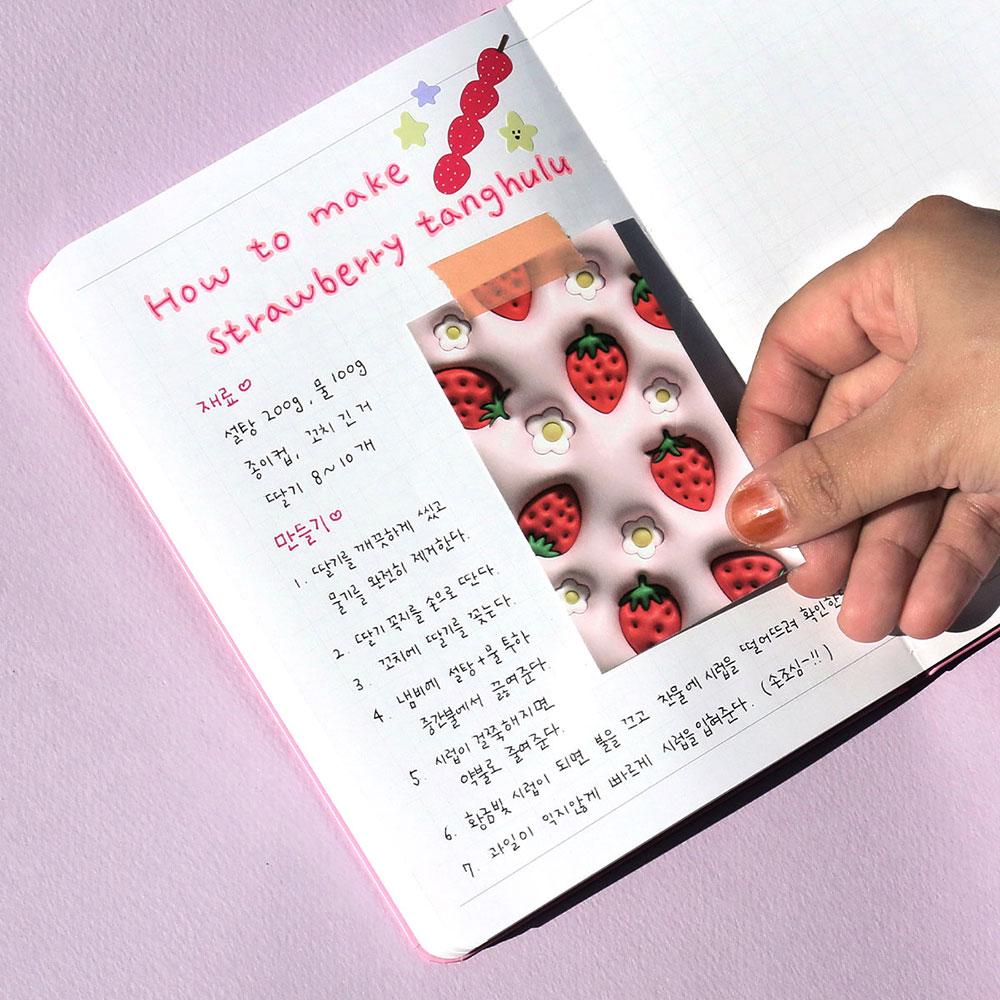 How to make
Strawberry tanghulu
재료♡
설탕 200g, 물 100g
종이컵, 꼬치 긴 거
딸기 8~10개
만들기♡
1. 딸기를 깨끗하게 씻고
물기를 완전히 제거한다.
2. 딸기 꼭지를 손으로 딴다.
3. 꼬치에 딸기를 꽂는다.
4. 냄비에 설탕+물 투하
중간불에서 끓여준다.
5. 시럽이 걸쭉해지면
약불로 줄여준다.
6. 황금빛 시럽이 되면 불을 끄고 찬물에 시럽을 떨어뜨려
7. 과일이 익지않게 빠르게 시럽을 입혀준다. (손조심~!!)